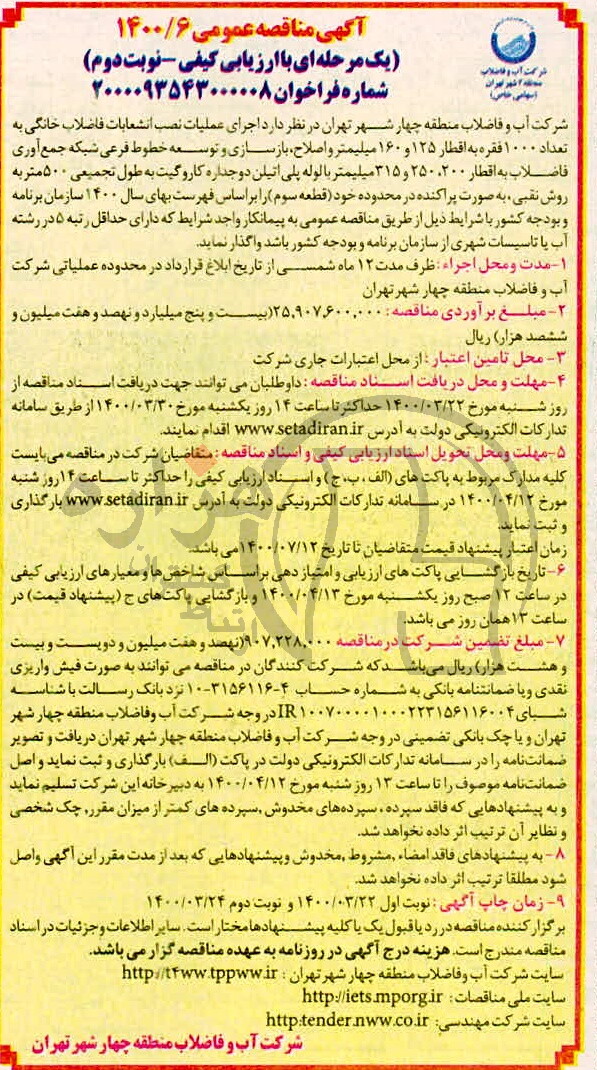 آگهی مناقصه عمومی ۱۴۰۰/۶
(یک مرحله‌ای با ارزیابی کیفی – نوبت دوم)
شماره فراخوان ۲۰۰۰۰۹۳۵۴۳۰۰۰۰۰۸
شرکت آب و فاضلاب
منطقه ۴ شهر تهران
(سهامی خاص)
شرکت آب و فاضلاب منطقه چهار شهر تهران در نظر دارد اجرای عملیات نصب انشعابات فاضلاب خانگی به
تعداد ۱۰۰۰ فقره به اقطار ۱۲۵ و ۱۶۰ میلیمتر و اصلاح، بازسازی و توسعه خطوط فرعی شبکه جمع آوری
فاضلاب به اقطار ۲۵۰،۲۰۰ و ۳۱۵ میلیمتر با لوله پلی اتیلن دوجداره کاروگیت به طول تجمیعی ۵۰۰ متر به
روش نقبی، به صورت پراکنده در محدوده خود (قطعه سوم) را بر اساس فهرست بهای سال ۱۴۰۰ سازمان برنامه
و بودجه کشور با شرایط ذیل از طریق مناقصه عمومی به پیمانکار واجد شرایط که دارای حداقل رتبه ۵ در رشته
آب یا تاسیسات شهری از سازمان برنامه و بودجه کشور باشد واگذار نماید.
۱-مدت و محل اجراء : ظرف مدت ۱۲ ماه شمسی از تاریخ ابلاغ قرارداد در محدوده عملیاتی شرکت
آب و فاضلاب منطقه چهار شهر تهران
۲- مبلغ برآوردی مناقصه : ۲۵,۹۰۷,۶۰۰,۰۰۰ (بیست و پنج میلیارد و نهصد و هفت میلیون و
ششصد هزار) ریال
۳- محل تامین اعتبار : از محل اعتبارات جاری شرکت
۴-مهلت و محل دریافت اسناد مناقصه : داوطلبان می توانند جهت دریافت اسناد مناقصه از
روز شنبه مورخ ۱۴۰۰/۰۳/۲۲ حداکثر تا ساعت ۱۴ روز یکشنبه مورخ ۱۴۰۰/۰۳/۳۰ از طریق سامانه
تدارکات الکترونیکی دولت به آدرس www.setadiran.ir اقدام نمایند.
۵-مهلت و محل تحویل اسناد ارزیابی کیفی و اسناد مناقصه : متقاضیان شرکت در مناقصه می‌بایست
کلیه مدارک مربوط به پاکت های (الف، ب، ج) و اسناد ارزیابی کیفی را حداکثر تا ساعت ۱۴ روز شنبه
مورخ ۱۴۰۰/۰۴/۱۲ در سامانه تدارکات الکترونیکی دولت به آدرس www.setadiran.ir بارگذاری
و ثبت نماید.
زمان اعتبار پیشنهاد قیمت متقاضیان تا تاریخ ۱۴۰۰/۰۷/۱۲ می باشد.
۶-تاریخ بازگشایی پاکت های ارزیابی و امتیاز دهی بر اساس شاخص‌ها و معیارهای ارزیابی کیفی
در ساعت ۱۲ صبح روز یکشنبه مورخ ۱۴۰۰/۰۴/۱۳ و بازگشایی پاکت‌های ج (پیشنهاد قیمت) در
ساعت ۱۳ همان روز می باشد.
۷-مبلغ تضمین شرکت در مناقصه ۹۰۷,۲۲۸,۰۰۰ (نهصد و هفت میلیون و دویست و بیست
و هشت هزار) ریال می‌باشد که شرکت کنندگان در مناقصه می توانند به صورت فیش واریزی
نقدی و یا ضمانتنامه بانکی به شماره حساب ۴-۳۱۵۶۱۱۶-۱۰ نزد بانک رسالت با شناسه
شبای IR ۱۰۰۷۰۰۰۰۱۰۰۰۲۲۳۱۵۶۱۱۶۰۰۴ در وجه شرکت آب وفاضلاب منطقه چهار شهر
تهران و یا چک بانکی تضمینی در وجه شرکت آب و فاضلاب منطقه چهار شهر تهران دریافت و تصویر
ضمانت‌نامه را در سامانه تدارکات الکترونیکی دولت در پاکت (الف) بارگذاری و ثبت نماید و اصل
ضمانت‌نامه موصوف را تا ساعت ۱۳ روز شنبه مورخ ۱۴۰۰/۰۴/۱۲ به دبیرخانه این شرکت تسلیم نماید
و به پیشنهادهایی که فاقد سپرده، سپرده‌های مخدوش ,سپرده های کمتر از میزان مقرر, چک شخصی
و نظایر آن ترتیب اثر داده نخواهد شد.
۸- به پیشنهادهای فاقد امضاء ,مشروط ,مخدوش و پیشنهادهایی که بعد از مدت مقرر این آگهی واصل
شود مطلقا ترتیب اثر داده نخواهد شد.
۹- زمان چاپ آگهی : نوبت اول ۱۴۰۰/۰۳/۲۲ و نوبت دوم ۱۴۰۰/۰۳/۲۴
برگزار کننده مناقصه در رد یا قبول یک یا کلیه پیشنهادها مختار است. سایر اطلاعات و جزئیات در اسناد
مناقصه مندرج است. هزینه درج آگهی در روزنامه به عهده مناقصه گزار می باشد.
سایت شرکت آب وفاضلاب منطقه چهار شهر تهران : http://t۴ww.tppww.ir
سایت ملی مناقصات : http://iets.mporg.ir
سایت شرکت مهندسی: http:tender.nww.co.ir
شرکت آب و فاضلاب منطقه چهار شهر تهران